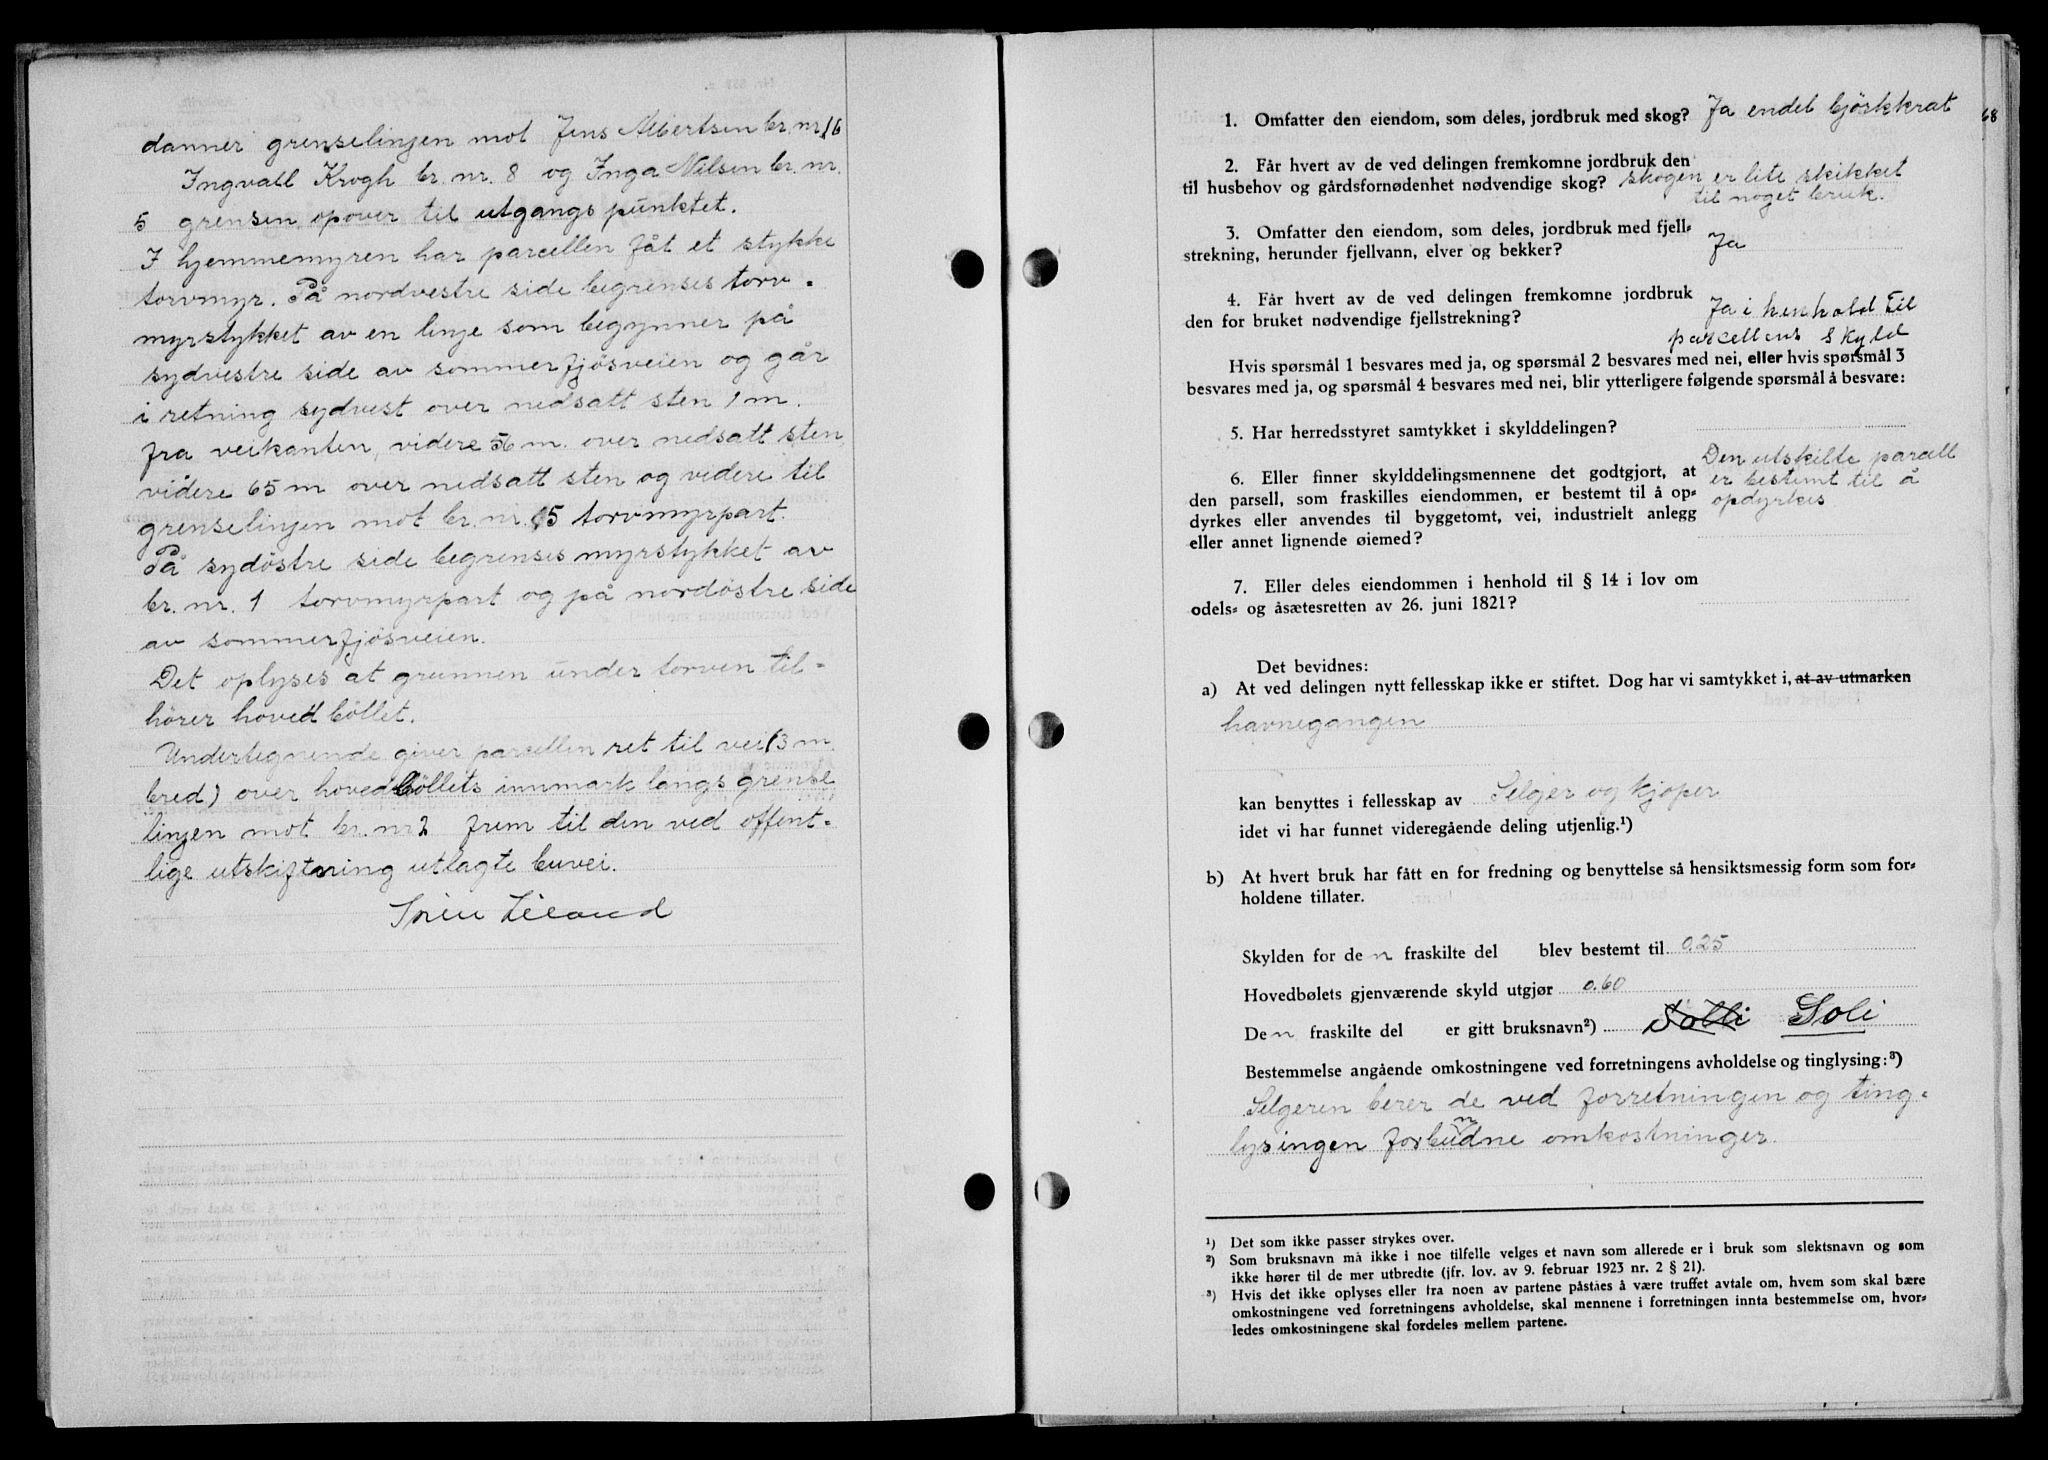 danner grenselinjen mot Jens Albertsen br. nr 16
Ingvall Krogh br. nr. 8 og Inga Nilsen br. nr.
5 grensen opover til utgangspunktet.
I hjemmemyren har parcellen fåt et stykke
torvmyr. På nordvestre side begrenses torv-
myrstykket av en linje som begynner på
sydvestre side av sommerfjøsveien og går
i retning sydvest over nedsatt sten 1 m.
fra veikanten, videre 56 m. over nedsatt sten,
videre 65 m over nedsatt sten og videre til
grenselinjen mot br. nr. 15 torvmyrpart.
På sydøstre side begrenses myrstykket av
br. nr. 1 torvmyrpart og på nordøstre side
av sommerfjøsveien.
Det oplyses at grunnen under torven til-
hører hovedböllet.
Undertegnende giver parcellen ret til vei (3 m.
bred) over hovedböllets innmark langs grense
linjen mot br. nr 2 frem til den ved offent-
lige utskiftning utlagte buvei.
68
1. Omfatter den eiendom, som deles, jordbruk med skog? Ja endel björkkrat
2. Får hvert av de ved delingen fremkomne jordbruk den
til husbehov og gårdsfornødenhet nødvendige skog? skogen er lite skikket
til noget bruk.
3. Omfatter den eiendom, som deles, jordbruk med fjell-
strekning, herunder fjellvann, elver og bekker? Ja
4. Får hvert av de ved delingen fremkomne jordbruk
den for bruket nødvendige fjellstrekning? Ja i henhold til
parcellens skyld
Hvis spørsmål 1 besvares med ja, og spørsmål 2 besvares med nei, eller hvis spørsmål 3
besvares med ja, og spørsmål 4 besvares med nei, blir ytterligere følgende spørsmål å besvare:
5. Har herredsstyret samtykket i skylddelingen?
6. Eller finner skylddelingsmennene det godtgjort, at
den parsell, som fraskilles eiendommen, er bestemt til å op-
dyrkes eller anvendes til byggetomt, vei, industrielt anlegg
eller annet lignende øiemed?
Den utskilte parcell
er bestemt til å
opdyrkes
7. Eller deles eiendommen i henhold til § 14 i lov om
odels- og åsætesretten av 26. juni 1821?
Det bevidnes:
a) At ved delingen nytt fellesskap ikke er stiftet. Dog har vi samtykket i, at av utmarken
havnegangen
kan benyttes i fellesskap av Selger og kjøper
idet vi har funnet videregående deling utjenlig.¹)
b) At hvert bruk har fått en for fredning og benyttelse så hensiktsmessig form som for-
holdene tillater.
Skylden for de n fraskilte del blev bestemt til 0.25
Hovedbølets gjenværende skyld utgjør 0.60
De n fraskilte del er gitt bruksnavn²) Solli Soli
Bestemmelse angående omkostningene ved forretningens avholdelse og tinglysing:³)
Selgeren bærer de ved forretningen og ting-
lysingen forbundne omkostninger.
¹) Det som ikke passer strykes over.
²) Som bruksnavn må ikke i noe tilfelle velges et navn som allerede er i bruk som slektsnavn og som
ikke hører til de mer utbredte (jfr. lov. av 9. februar 1923 nr. 2 § 21).
³) Hvis det ikke oplyses eller fra noen av partene påståes å være truffet avtale om, hvem som skal bære
omkostningene ved forretningens avholdelse, skal mennene i forretningen innta bestemmelse om, hvor-
ledes omkostningene skal fordeles mellem partene.